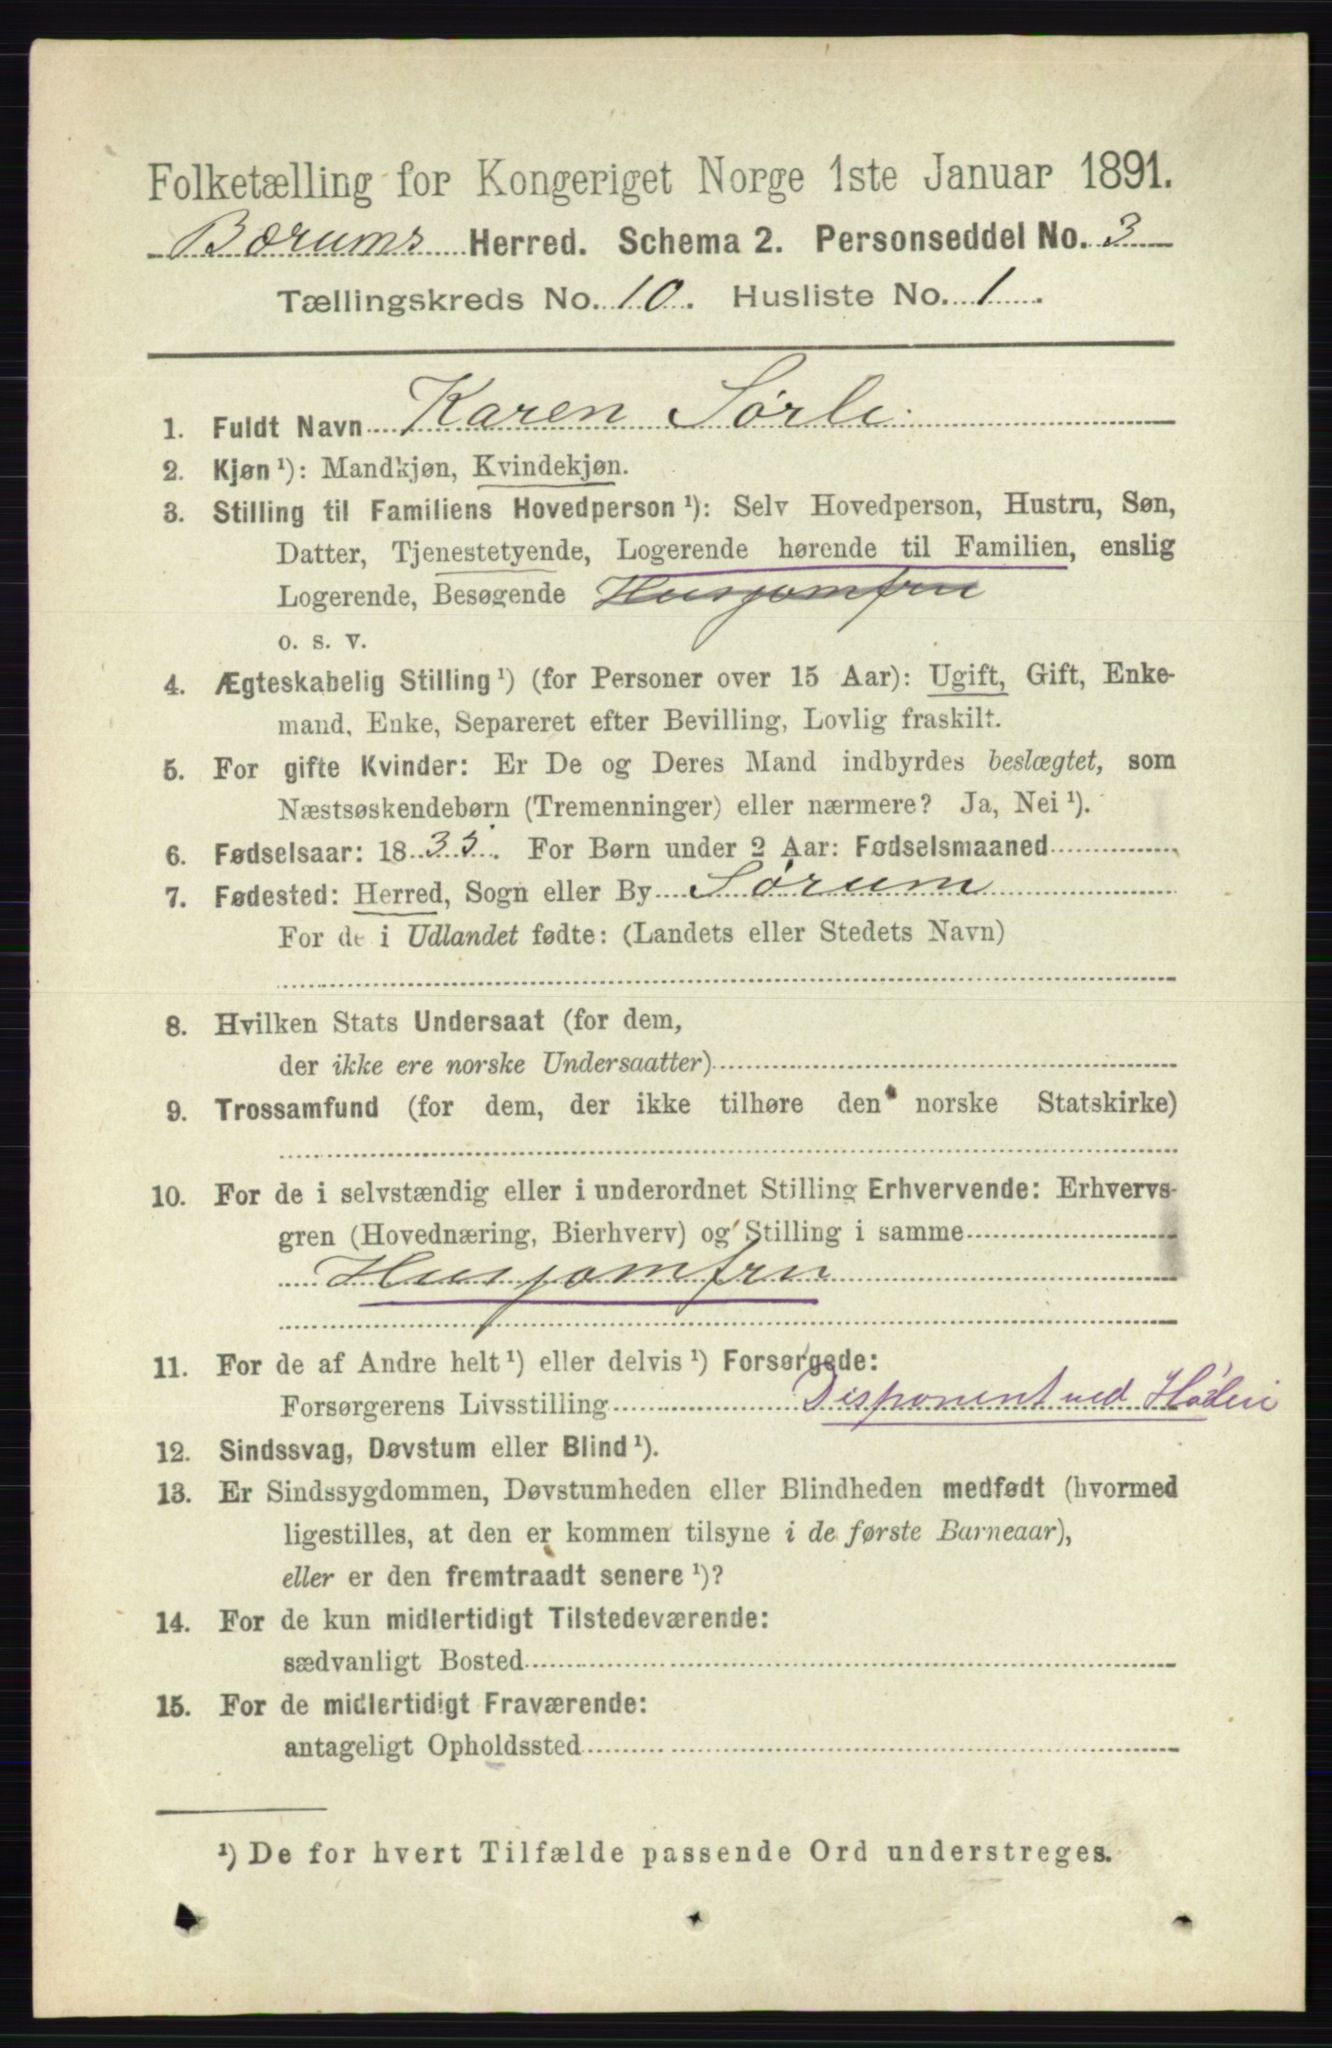 Folketælling for Kongeriget Norge 1ste Januar 1891.
Bærums Herred. Schema 2. Personseddel No. 3
Tællingskreds No. 10. Husliste No. 1.
1. Fuldt Navn Karen Sørli
2. Kjøn ¹): Mandkjøn, Kvindekjøn.
3. Stilling til Familiens Hovedperson ¹): Selv Hovedperson, Hustru, Søn,
Datter, Tjenestetyende, Logerende hørende til Familien, enslig
Logerende, Besøgende Husjomfru
o. s. v.
4. Ægteskabelig Stilling ¹) (for Personer over 15 Aar): Ugift, Gift, Enke-
mand, Enke, Separeret efter Bevilling, Lovlig fraskilt.
5. For gifte Kvinder: Er De og Deres Mand indbyrdes beslægtet, som
Næstsøskendebørn (Tremenninger) eller nærmere? Ja, Nei ¹).
6. Fødselsaar: 1833. For Børn under 2 Aar: Fødselsmaaned
7. Fødested: Herred, Sogn eller By Sørum
For de i Udlandet fødte: (Landets eller Stedets Navn)
8. Hvilken Stats Undersaat (for dem,
der ikke ere norske Undersaatter)
9. Trossamfund (for dem, der ikke tilhøre den norske Statskirke)
10. For de i selvstændig eller i underordnet Stilling Erhvervende: Erhvervs-
gren (Hovednæring, Bierhverv) og Stilling i samme
Husjomfru
11. For de af Andre helt ¹) eller delvis ¹) Forsørgede:
Forsørgerens Livsstilling Disponent ved
12. Sindssvag, Døvstum eller Blind ¹).
13. Er Sindssygdommen, Døvstumheden eller Blindheden medfødt (hvormed
ligestilles, at den er kommen tilsyne i de første Barneaar),
eller er den fremtraadt senere ¹)?
14. For de kun midlertidigt Tilstedeværende:
sædvanligt Bosted
15. For de midlertidigt Fraværende:
antageligt Opholdssted
¹) De for hvert Tilfælde passende Ord understreges.